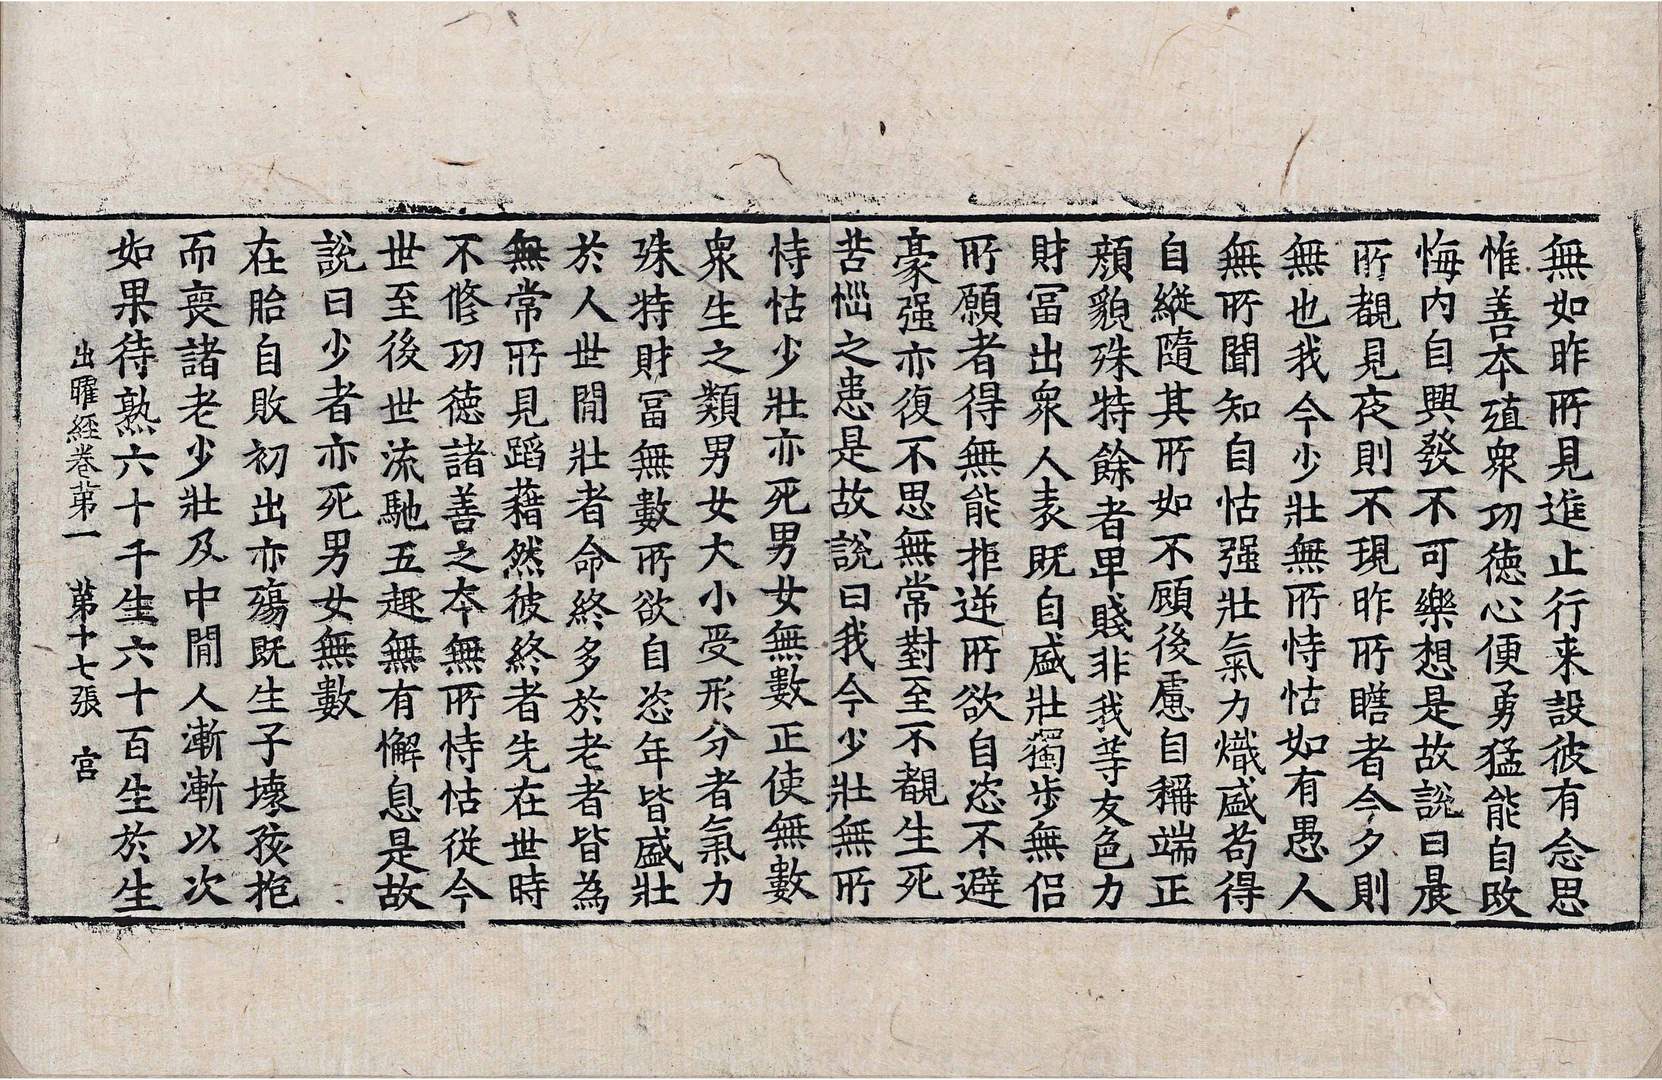 無如昨所見進止行来設彼有念思
惟善本殖衆功徳心便勇猛能自改
悔内自興發不可樂想是故說曰晨
所覩見夜則不現昨所瞻者今夕則
無也我今少壯無所恃怙如有愚人
無所聞知自怙强壯氣力熾盛苟得
自縱隨其所如不顧後慮自稱端正
顔貌殊特餘者卑賤非我等友色力
財冨出衆人表既自盛壯獨步無侣
所願者得無能拒逆所欲自恣不避
豪强亦復不思無常對至不覩生死
苦惱之患是故說曰我今少壯無所
恃怙少壯亦死男女無數正使無數
衆生之類男女大小受形分者氣力
殊特財冨無數所欲自恣年皆盛壯
於人世閒壯者命終多於老者皆為
無常所見蹈藉然彼終者先在世時
不修功徳諸善之本無所恃怙從今
世至後世流馳五趣無有懈息是故
說曰少者亦死男女無數
在胎自敗初出亦殤既生子壞孩抱
而喪諸老少壯及中閒人漸漸以次
如果待熟六十千生六十百生於生
出曜經卷第一 第十七張 宮